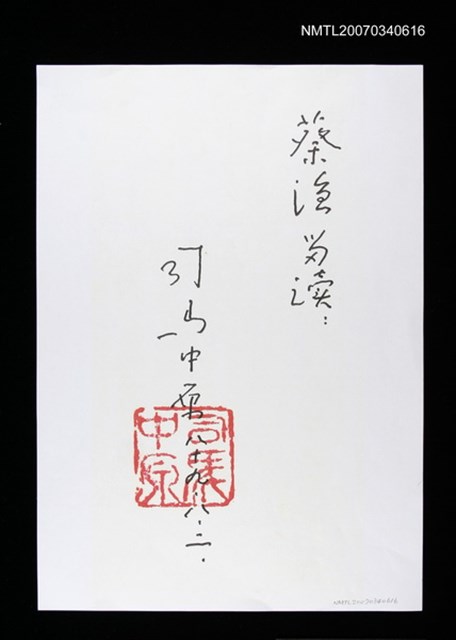 NMTL20070340616
蔡漁 留读:
司马中原 八十九.八.二.
司馬
中原
NMTL20070340616